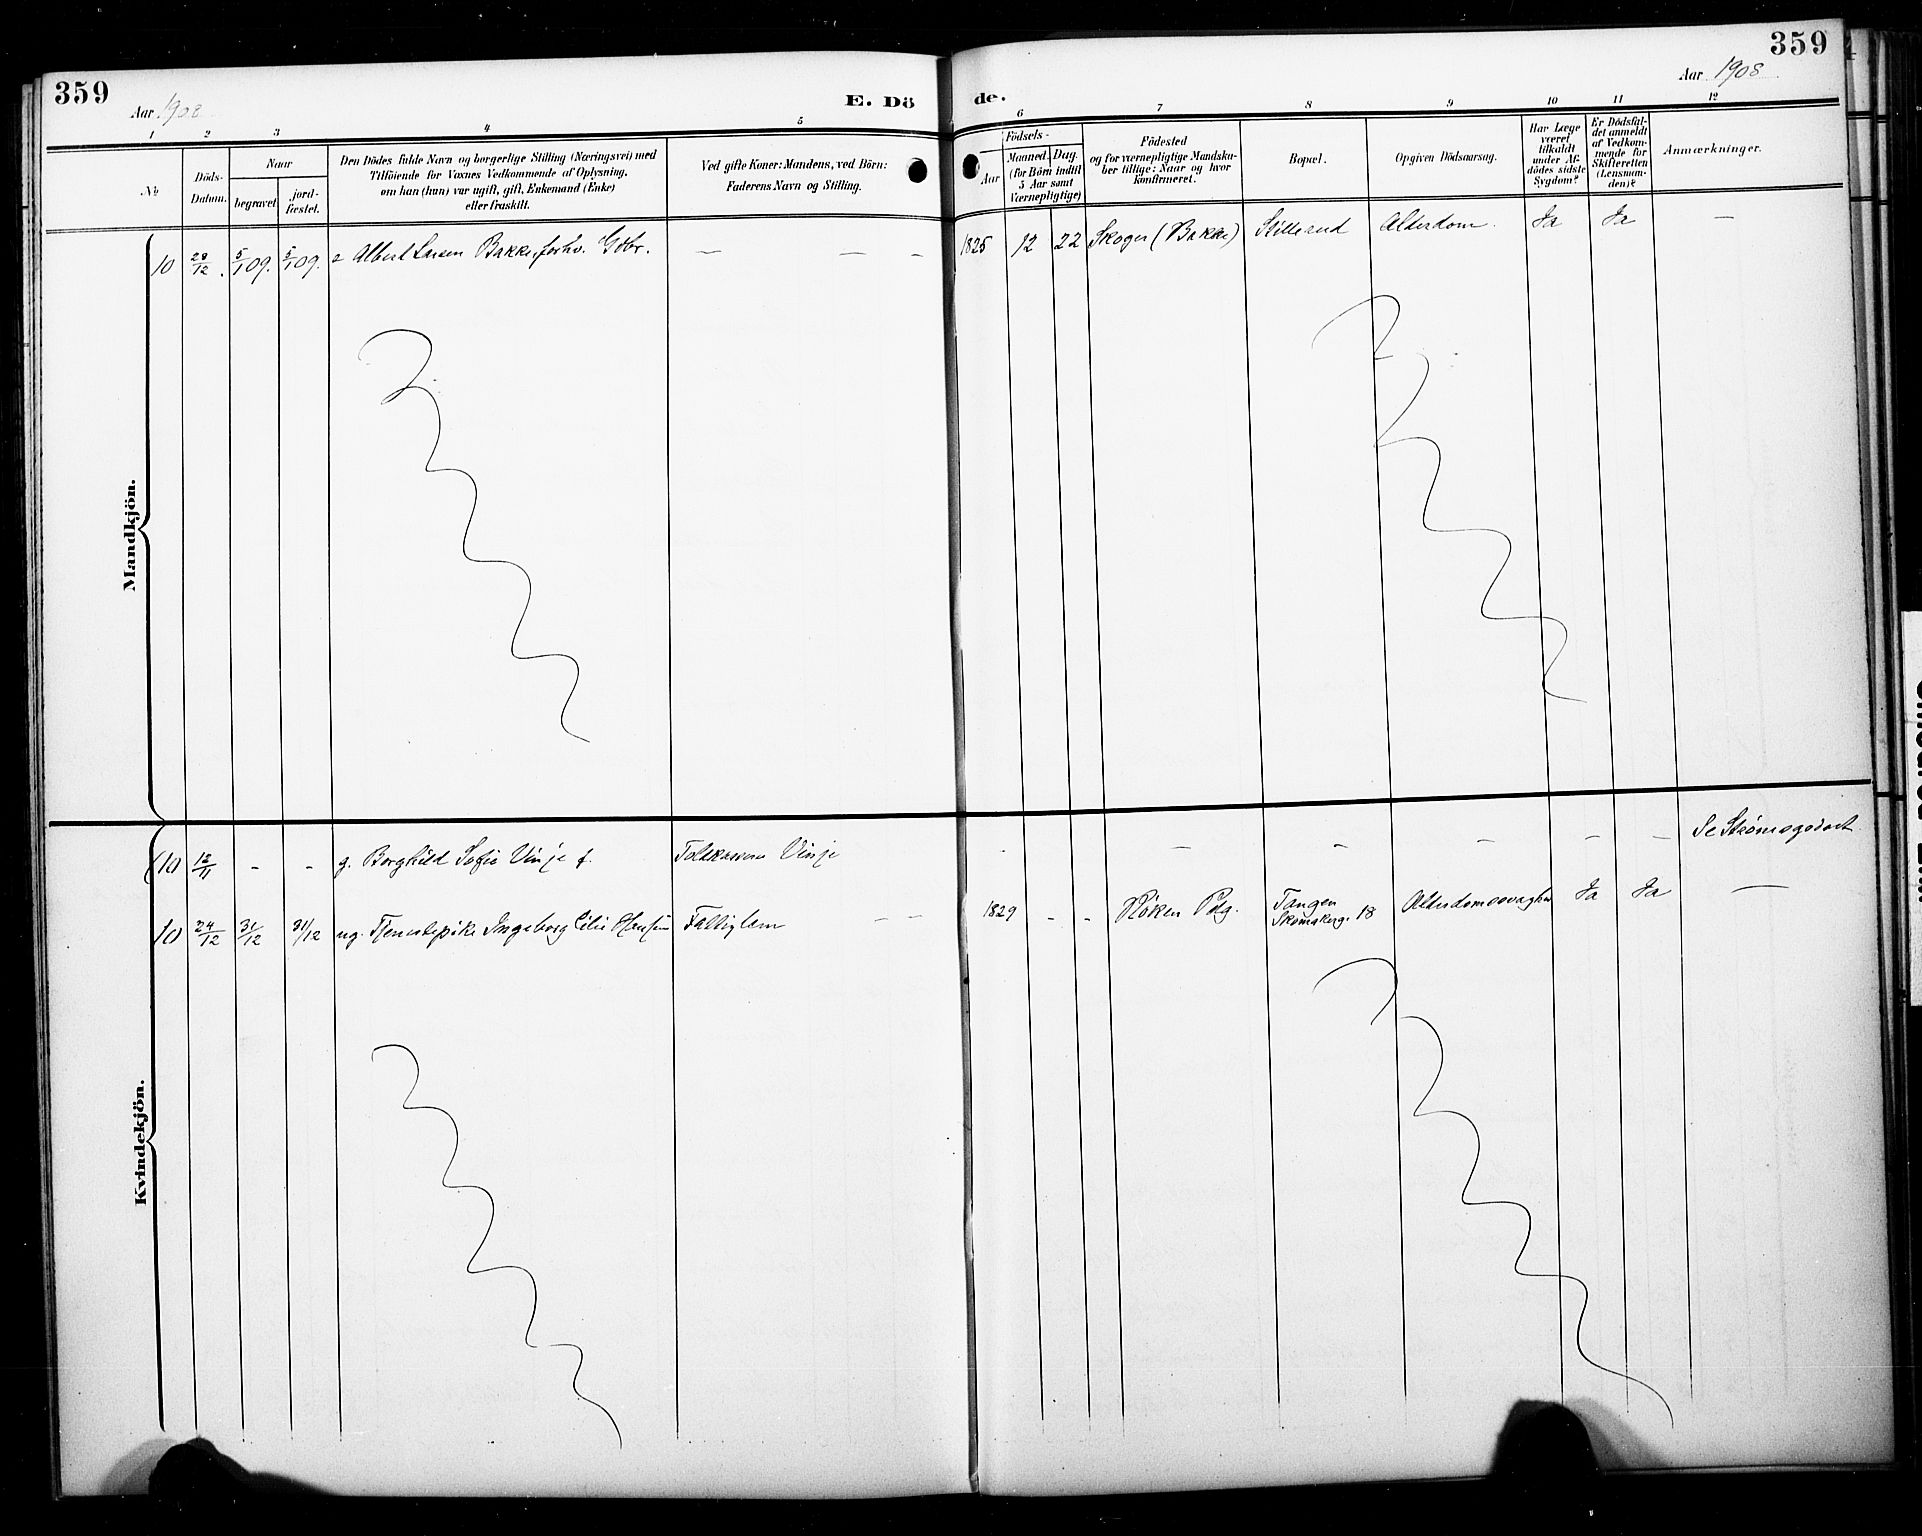 359
Aar 1908
E. Dö
de.
359
Aar 1908
1 2 3 4 5 6 7 8 9 10 11 12
№
Döds-
Datum.
Naar
begravet
jord-
fæstet.
Den Dödes fulde Navn og borgerlige Stilling (Næringsvei) med
Tilföiende for Voxnes Vedkommende af Oplysning,
om han (hun) var ugift, gift, Enkemand (Enke)
eller fraskilt.
Ved gifte Koner: Mandens, ved Börn:
Faderens Navn og Stilling.
Födsels-
Aar
Maaned.
Dag.
(for Börn indtil
5 Aar samt
Værnepligtige)
Födested
og for værnepligtige Mandska-
ber tillige: Naar og hvor
konfirmeret.
Bopæl.
Opgiven Dödsaarsag.
Har Læge
været
tilkaldt
under Af-
dödes sidste
Sygdom?
Er Dödsfal-
det anmeldt
af Vedkom-
mende for
Skifteretten
(Lensman-
den)?
Anmærkninger.
Mandkjön.
10 28/12. 5/1 09. 5/1 09. Albert Larsen Bakke, forhv. Gdbr. — — - 1825 12 22 Skoger (Bakke) Alderdom. Ja Ja —
Kvindekjön.
(10 12/11 - - g. Borghild Sofie Vinje f. Toldkasserer Vinje - — — — — — Se Strømsgodset
10 24/12 31/12 31/12 ug. Tjenestepike Ingeborg Cilie Hansen Fattiglem — — 1829 - - Røken Pdg. Tangen
Skomakerg. 18 Alderdomssvaghed Ja Ja —